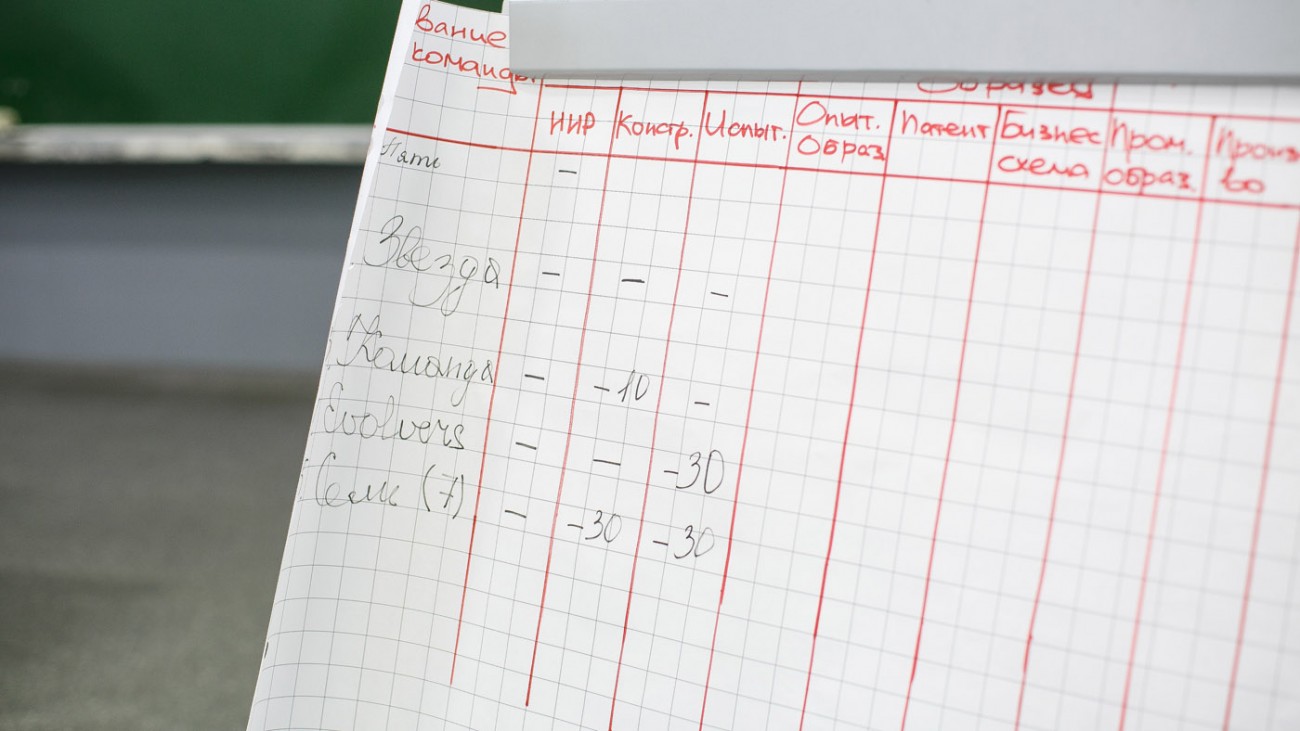 вание
команды
Образец
НИР Констр. Испыт. Опыт. Образ Патент Бизнес схема Пром. образ. Произ во
Пять –
Звезда – – –
Команда – -10 –
Evolvers – – -30
Семь (7) – -30 -30